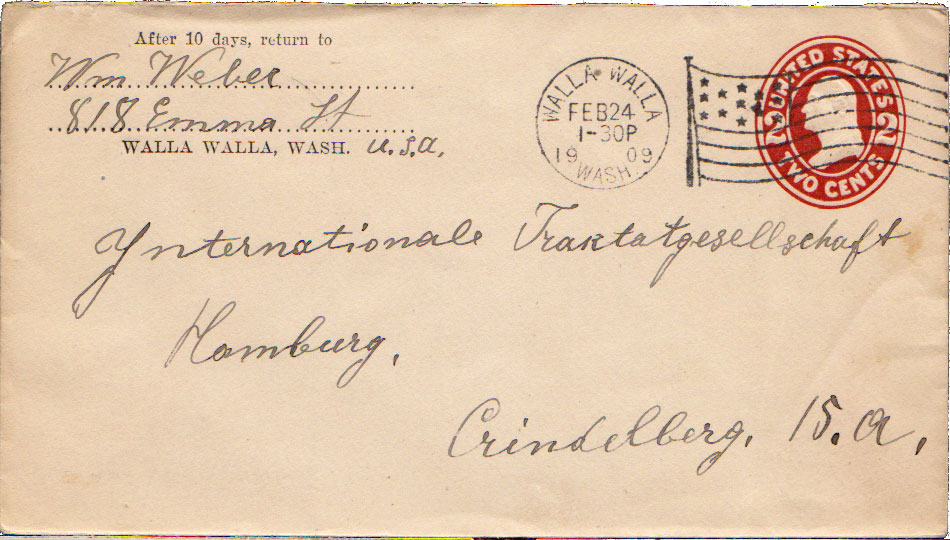 After 10 days, return to
Wm Weber
818 Emma St
WALLA WALLA, WASH. U.S.A.
WALLA WALLA
FEB 24
1-30P
1909
WASH.
UNITED STATES
2 2
TWO CENTS
Ynternationale Traktatgesellschaft
Hamburg,
Crindelberg, 15.a,